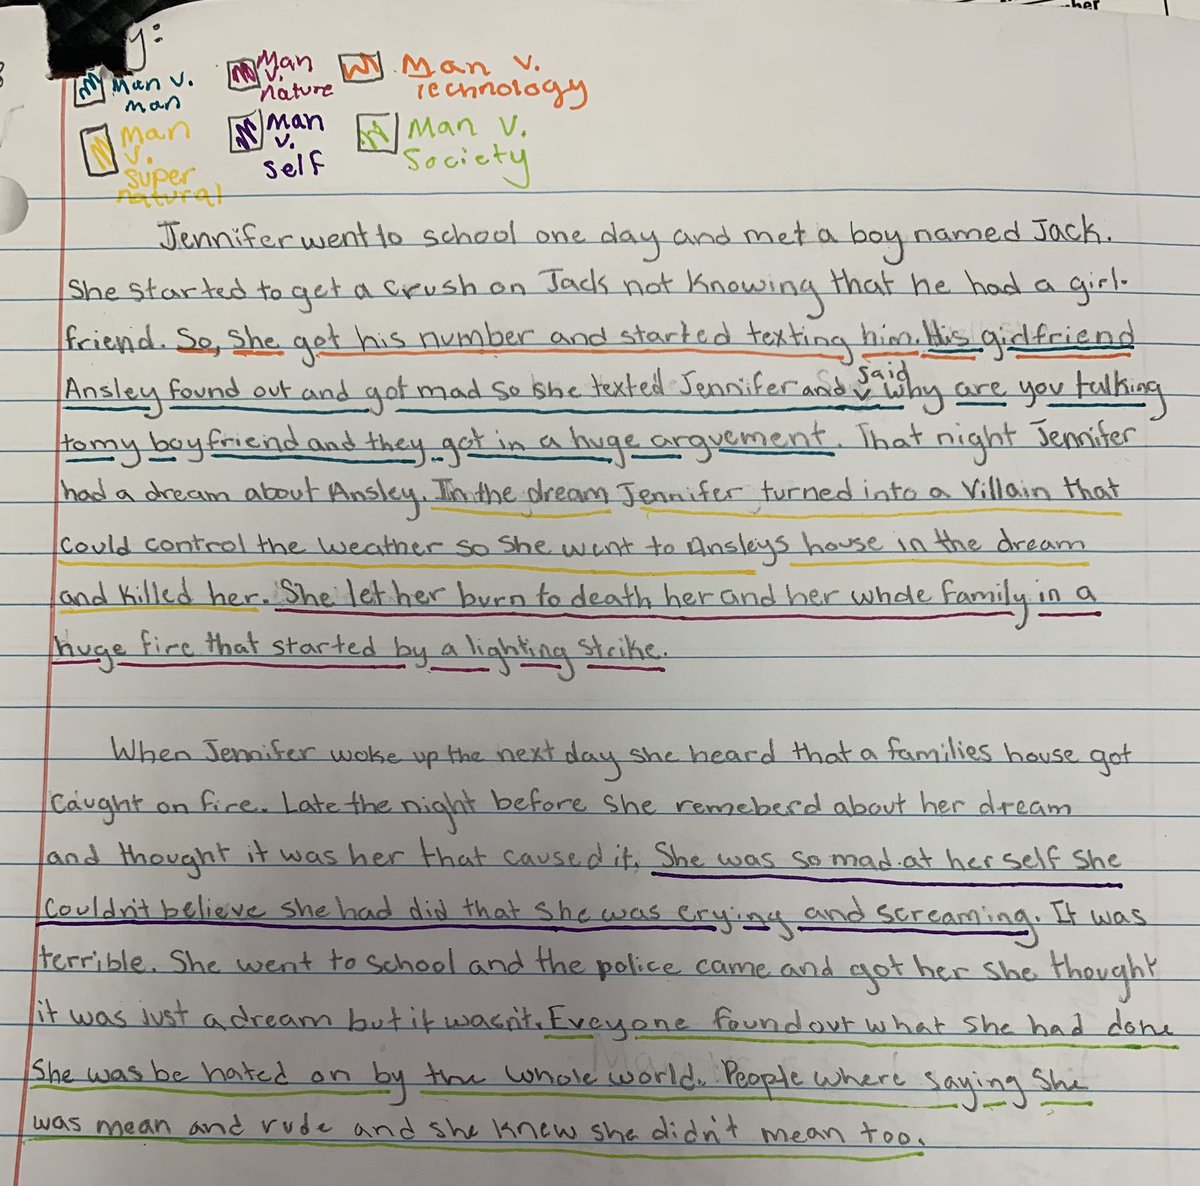 y:
Man v. man
Man v. nature
Man v. Technology
Man v. super natural
Man v. self
Man v. Society
Jennifer went to school one day and met a boy named Jack.
She started to get a crush on Jack not knowing that he had a girl-
friend. So, She got his number and started texting him. His girlfriend
Ansley found out and got mad so she texted Jennifer and said why are you talking
to my boyfriend and they got in a huge arguement. That night Jennifer
had a dream about Ansley. In the dream Jennifer turned into a Villain that
could control the weather so she went to Ansleys house in the dream
and killed her. She let her burn to death her and her whole family in a
huge fire that started by a lighting strike.
When Jennifer woke up the next day she heard that a families house got
caught on fire. Late the night before she remeberd about her dream
and thought it was her that caused it. She was so mad at her self she
couldn't believe she had did that she was crying and screaming. It was
terrible. She went to school and the police came and got her she thought
it was just a dream but it wasn't. Eveyone found out what she had done
She was be hated on by the whole world. People where saying she
was mean and rude and she knew she didn't mean too.